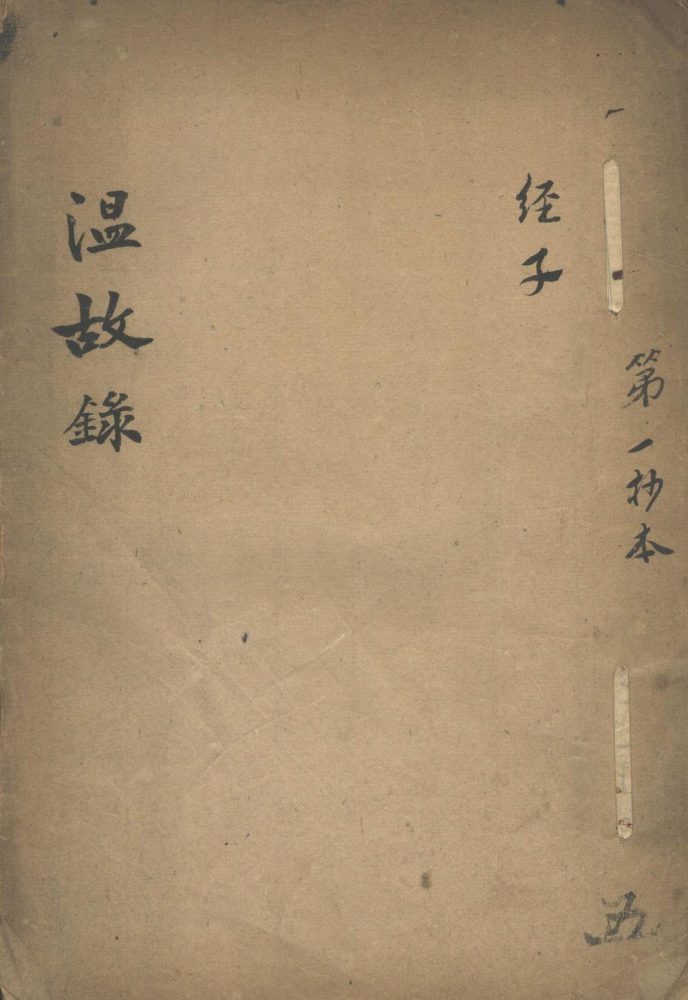 第一抄本
经子
温故錄
五